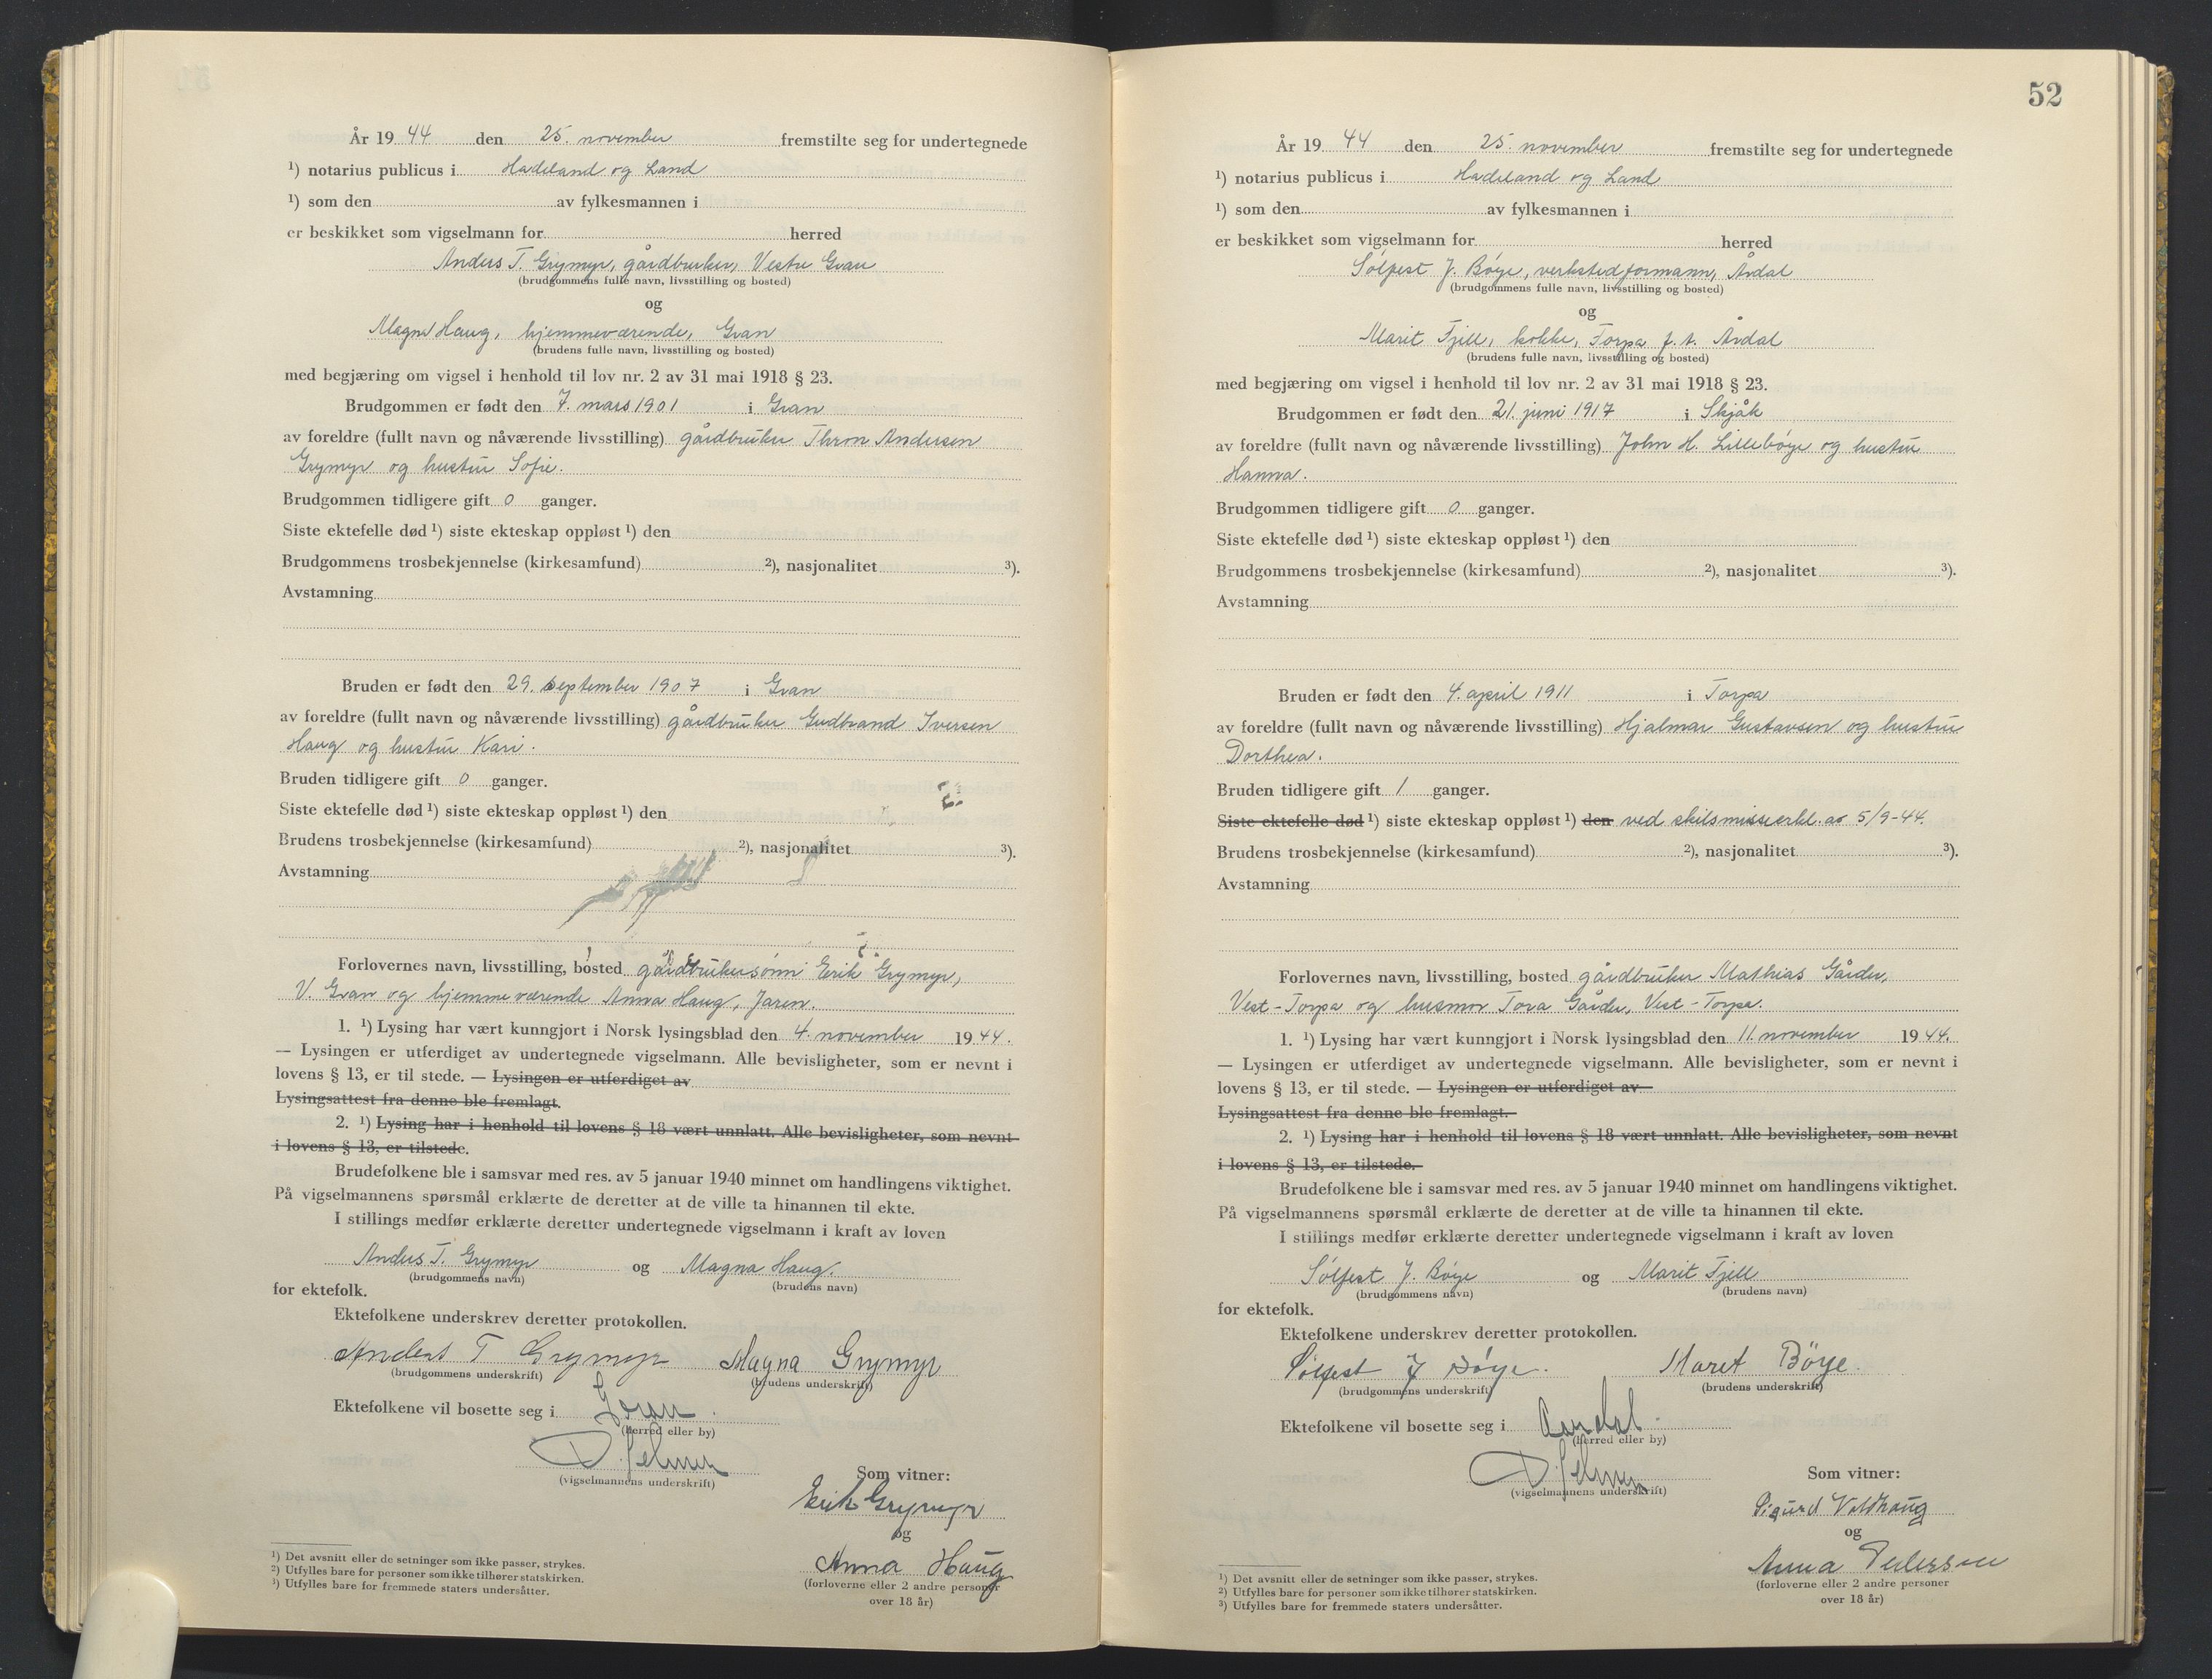 År 19 44 den 25. november fremstilte seg for undertegnede
¹) notarius publicus i Hadeland og Land
¹) som den av fylkesmannen i
er beskikket som vigselmann for herred
Anders T. Grymyr, gårdbruker, Vestre Gran
(brudgommens fulle navn, livsstilling og bosted)
og
Magna Haug, hjemmeværende, Gran
(brudens fulle navn, livsstilling og bosted)
med begjæring om vigsel i henhold til lov nr. 2 av 31 mai 1918 § 23.
Brudgommen er født den 7. mars 1901 i Gran
av foreldre (fullt navn og nåværende livsstilling) gårdbruker Thron Andersen
Grymyr og hustru Sofie.
Brudgommen tidligere gift 0 ganger.
Siste ektefelle død ¹) siste ekteskap oppløst ¹) den
Brudgommens trosbekjennelse (kirkesamfund) ²), nasjonalitet ³).
Avstamning
Bruden er født den 29. september 1907 i Gran
av foreldre (fullt navn og nåværende livsstilling) gårdbruker Gudbrand Iversen
Haug og hustru Kari.
Bruden tidligere gift 0 ganger.
Siste ektefelle død ¹) siste ekteskap oppløst ¹) den
Brudens trosbekjennelse (kirkesamfund) ²), nasjonalitet ³).
Avstamning
Forlovernes navn, livsstilling, bosted gårdbrukersønn Erik Grymyr,
V. Gran og hjemmeværende Anna Haug, Jaren.
1. ¹) Lysing har vært kunngjort i Norsk lysingsblad den 4. november 1944.
— Lysingen er utferdiget av undertegnede vigselmann. Alle bevisligheter, som er nevnt i
lovens § 13, er til stede. — Lysingen er utferdiget av
Lysingsattest fra denne ble fremlagt.
2. ¹) Lysing har i henhold til lovens § 18 vært unnlatt. Alle bevisligheter, som nevnt
i lovens § 13, er tilstede.
Brudefolkene ble i samsvar med res. av 5 januar 1940 minnet om handlingens viktighet.
På vigselmannens spørsmål erklærte de deretter at de ville ta hinannen til ekte.
I stillings medfør erklærte deretter undertegnede vigselmann i kraft av loven
Anders T. Grymyr og Magna Haug.
(brudgommens navn) (brudens navn)
for ektefolk.
Ektefolkene underskrev deretter protokollen.
Anders T Grymyr Magna Grymyr
(brudgommens underskrift) (brudens underskrift)
Ektefolkene vil bosette seg i Gran.
(herred eller by)
(vigselmannens underskrift)
Som vitner:
Erik Grymyr
og
Anna Haug
(forloverne eller 2 andre personer
over 18 år)
¹) Det avsnitt eller de setninger som ikke passer, strykes.
²) Utfylles bare for personer som ikke tilhører statskirken.
³) Utfylles bare for fremmede staters undersåtter.
52
År 19 44 den 25. november fremstilte seg for undertegnede
¹) notarius publicus i Hadeland og Land
¹) som den av fylkesmannen i
er beskikket som vigselmann for herred
Sølfest J. Bøye, verkstedformann, Årdal
(brudgommens fulle navn, livsstilling og bosted)
og
Marit Fjell, kokke, Torpa f. t. Årdal
(brudens fulle navn, livsstilling og bosted)
med begjæring om vigsel i henhold til lov nr. 2 av 31 mai 1918 § 23.
Brudgommen er født den 21. juni 1917 i Skjåk
av foreldre (fullt navn og nåværende livsstilling) John H. Lillebøye og hustru
Hanna.
Brudgommen tidligere gift 0 ganger.
Siste ektefelle død ¹) siste ekteskap oppløst ¹) den
Brudgommens trosbekjennelse (kirkesamfund) ²), nasjonalitet ³).
Avstamning
Bruden er født den 4. april 1911 i Torpa
av foreldre (fullt navn og nåværende livsstilling) Hjalmar Gustavsen og hustru
Dorthea.
Bruden tidligere gift 1 ganger.
Siste ektefelle død ¹) siste ekteskap oppløst ¹) den ved skilsmisseerkl. av 5/9-44.
Brudens trosbekjennelse (kirkesamfund) ²), nasjonalitet ³).
Avstamning
Forlovernes navn, livsstilling, bosted gårdbruker Mathias Gårder,
Vest-Torpa og husmor Tora Gårder, Vest-Torpa.
1. ¹) Lysing har vært kunngjort i Norsk lysingsblad den 11. november 1944.
— Lysingen er utferdiget av undertegnede vigselmann. Alle bevisligheter, som er nevnt i
lovens § 13, er til stede. — Lysingen er utferdiget av
Lysingsattest fra denne ble fremlagt.
2. ¹) Lysing har i henhold til lovens § 18 vært unnlatt. Alle bevisligheter, som nevnt
i lovens § 13, er tilstede.
Brudefolkene ble i samsvar med res. av 5 januar 1940 minnet om handlingens viktighet.
På vigselmannens spørsmål erklærte de deretter at de ville ta hinannen til ekte.
I stillings medfør erklærte deretter undertegnede vigselmann i kraft av loven
Sølfest J. Bøye og Marit Fjell
(brudgommens navn) (brudens navn)
for ektefolk.
Ektefolkene underskrev deretter protokollen.
Sølfest J Bøye. Maret Böye.
(brudgommens underskrift) (brudens underskrift)
Ektefolkene vil bosette seg i Aardal.
(herred eller by)
(vigselmannens underskrift)
Som vitner:
Sigurd Voldhaug
og
Anna Pedersen
(forloverne eller 2 andre personer
over 18 år)
¹) Det avsnitt eller de setninger som ikke passer, strykes.
²) Utfylles bare for personer som ikke tilhører statskirken.
³) Utfylles bare for fremmede staters undersåtter.